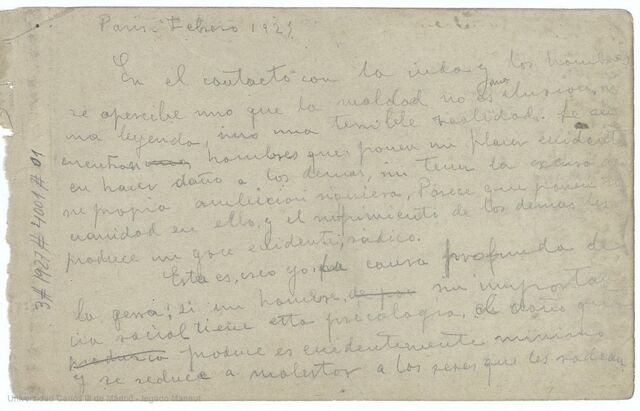 Paris. Febrero 1927
En el contacto con la vida y los hombres
se apercibe uno que la maldad no es ilusion, ni
una leyenda, sino una terrible realidad. Se en
cuentran hombres que ponen un placer evidente
en hacer daño a los demas, sin tener la excusa de
su propia ambicion siquiera, Parece que ponen su
vanidad en ello, y el sufrimiento de los demas les
produce un goce evidente, sadico.
Esta es, creo yo, la causa profunda de
la guerra; si un hombre, de por su importan
cia social tiene esta psicologia, el daño que
produce es evidentemente minimo
y se reduce a molestar a los seres que les rodean
3#1927#4001#01
Universidad Carlos III de Madrid - legado Manaut